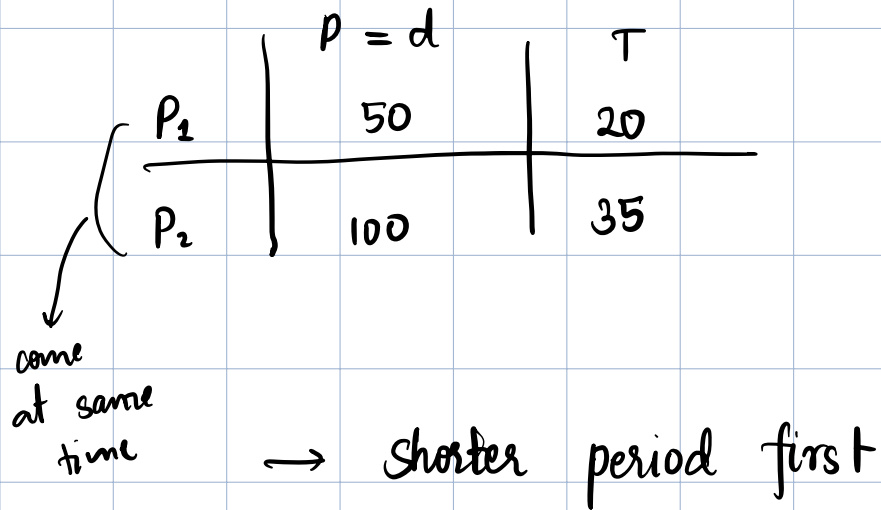 P = d T
P₁ 50 20
P₂ 100 35
come
at same
time → shorter period first